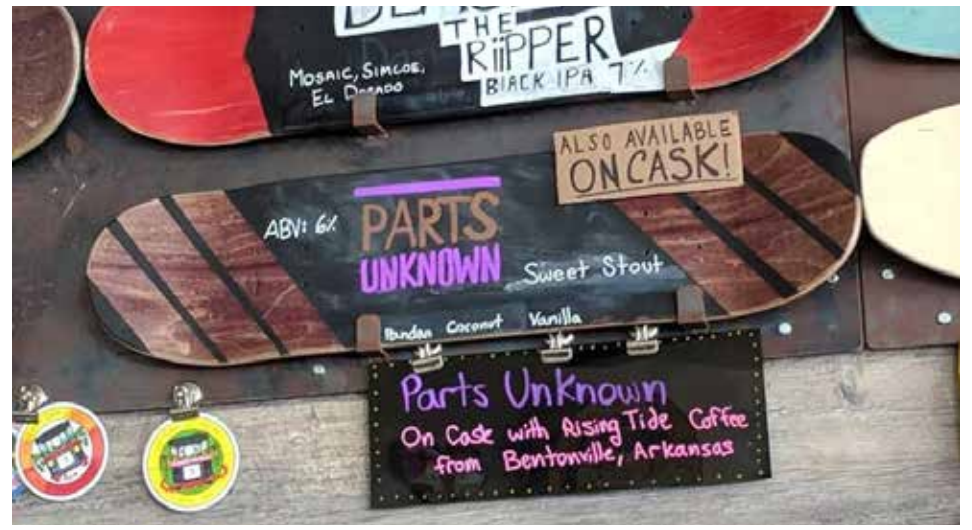 THE
RiiPPER
BLACK IPA 7%
MOSAIC, SIMCOE,
EL DORADO
ALSO AVAILABLE
ON CASK!
ABV: 6%
PARTS
UNKNOWN
Sweet Stout
Pandan Coconut Vanilla
Parts Unknown
On Cask with Rising Tide Coffee
from Bentonville, Arkansas